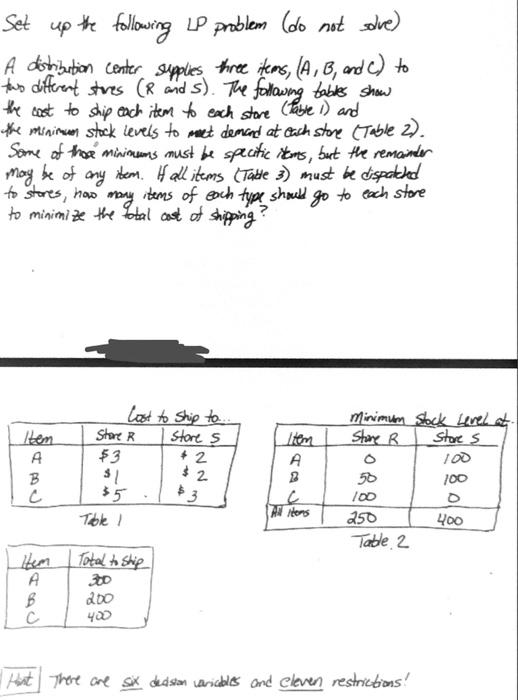 Set up the following LP problem (do not solve)
A distribution center supplies three items, (A, B, and C) to
two different stores (R and S). The following tables show
the cost to ship each item to each store (Table 1) and
the minimum stock levels to meet demand at each store (Table 2).
Some of those minimums must be specific items, but the remainder
may be of any item. If all items (Table 3) must be dispatched
to stores, how many items of each type should go to each store
to minimize the total cost of shipping?
Cost to ship to...
Item Store R Store S
A $3 $2
B $1 $2
C $5 $3
Table 1
Minimum Stock Level at
Item Store R Store S
A 0 100
B 50 100
C 100 0
All items 250 400
Table 2
Item Total to ship
A 300
B 200
C 400
Hint There are six decision variables and eleven restrictions!